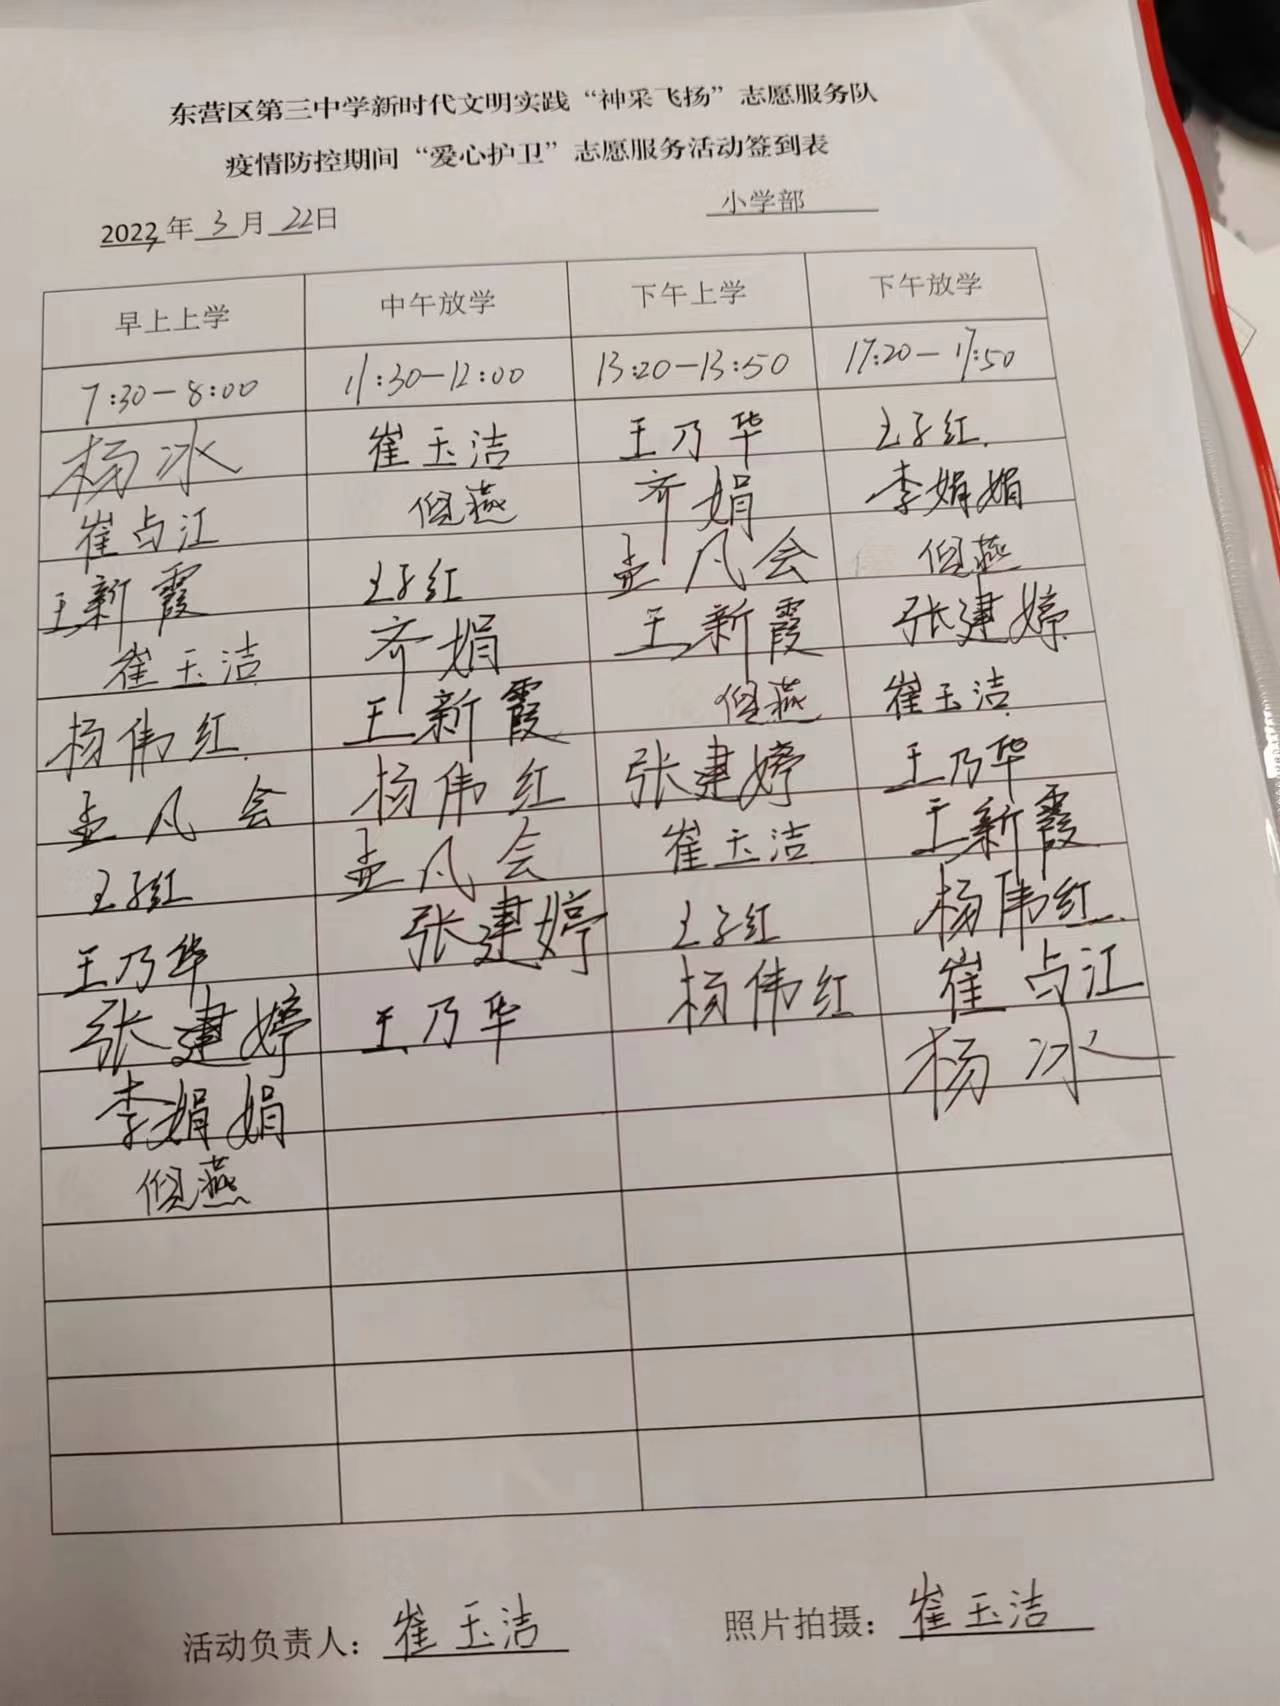 东营区第三中学新时代文明实践“神采飞扬”志愿服务队
疫情防控期间“爱心护卫”志愿服务活动签到表
2023年 3 月 22日 小学部
早上上学 中午放学 下午上学 下午放学
7:30—8:00 11:30—12:00 13:20—13:50 17:20—17:50
杨冰 崔玉洁 王乃华 王子红
崔占江 倪燕 齐娟 李娟娟
王新霞 王子红 孟凡会 倪燕
崔玉洁 齐娟 王新霞 张建婷
杨伟红 王新霞 倪燕 崔玉洁
孟凡会 杨伟红 张建婷 王乃华
王子红 孟凡会 崔玉洁 王新霞
王乃华 张建婷 王子红 杨伟红
张建婷 王乃华 杨伟红 崔占江
李娟娟 杨冰
倪燕
活动负责人：崔玉洁 照片拍摄：崔玉洁